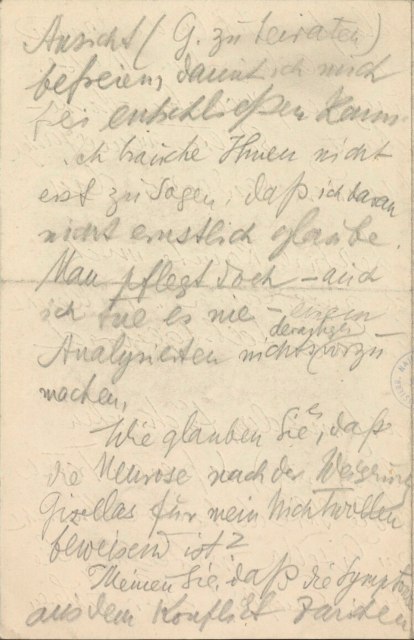 Ansicht (G. zu heiraten)
befreien, damit ich mich
frei entschließen kann.
Ich brauche Ihnen nicht
erst zu sagen, daß ich daran
nicht ernstlich glaube.
Man pflegt doch – auch
ich tue es nie – einem
derartiges
Analysierten nichts vorzu
machen.
Wie glauben Sie es, daß
die Neurose nach der Weigerung
Gizellas für mein Nichtwollen
beweisend ist?
Meinen Sie, daß die Symptome
aus dem Konflikt zwischen